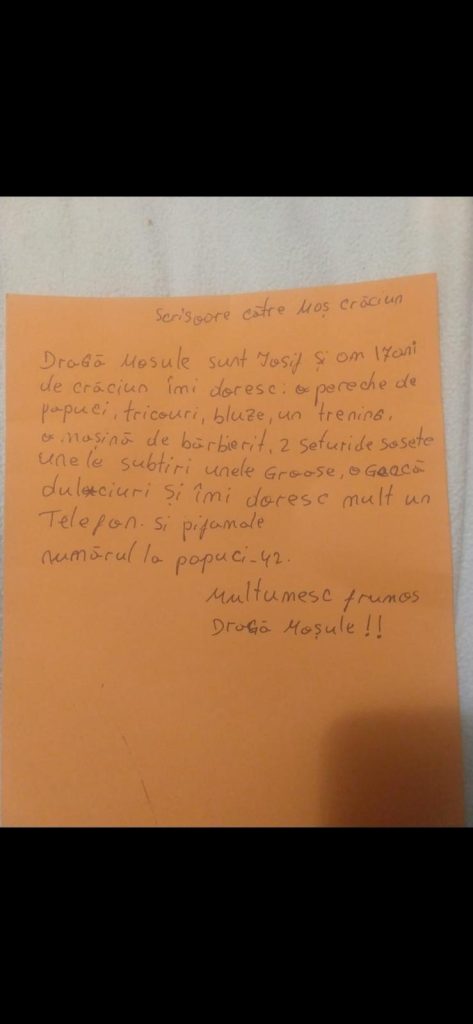 Scrisoare către Moș crăciun
Dragă Mosule sunt Iosif și am 17ani
de crăciun îmi doresc: o pereche de
papuci, tricouri, bluze, un trening,
o mașină de bărbierit, 2 seturi de sosete
unele subtiri unele Groase, o Geacă
dulciuri și îmi doresc mult un
Telefon. si pijamale
numărul la papuci-42.
Multumesc frumos
Dragă Moșule!!